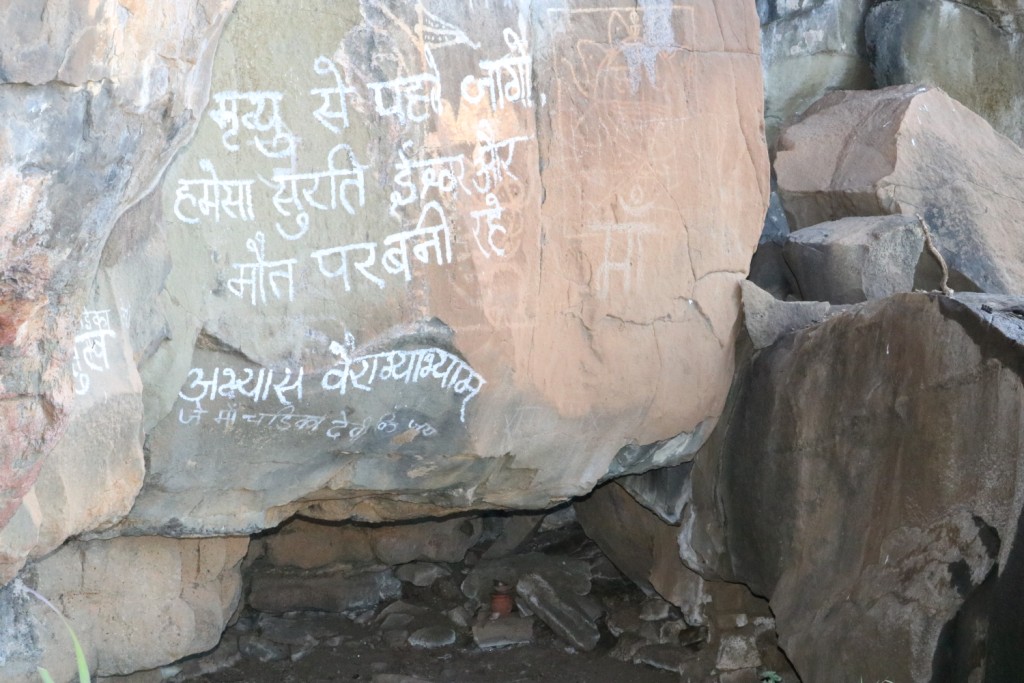 मृत्यु से पहले जागो,
हमेसा सुरति ईश्वर और
मौत पर बनी रहे
माँ
अभ्यास वैराग्याभ्याम्
जे माँ चंडिका देवी